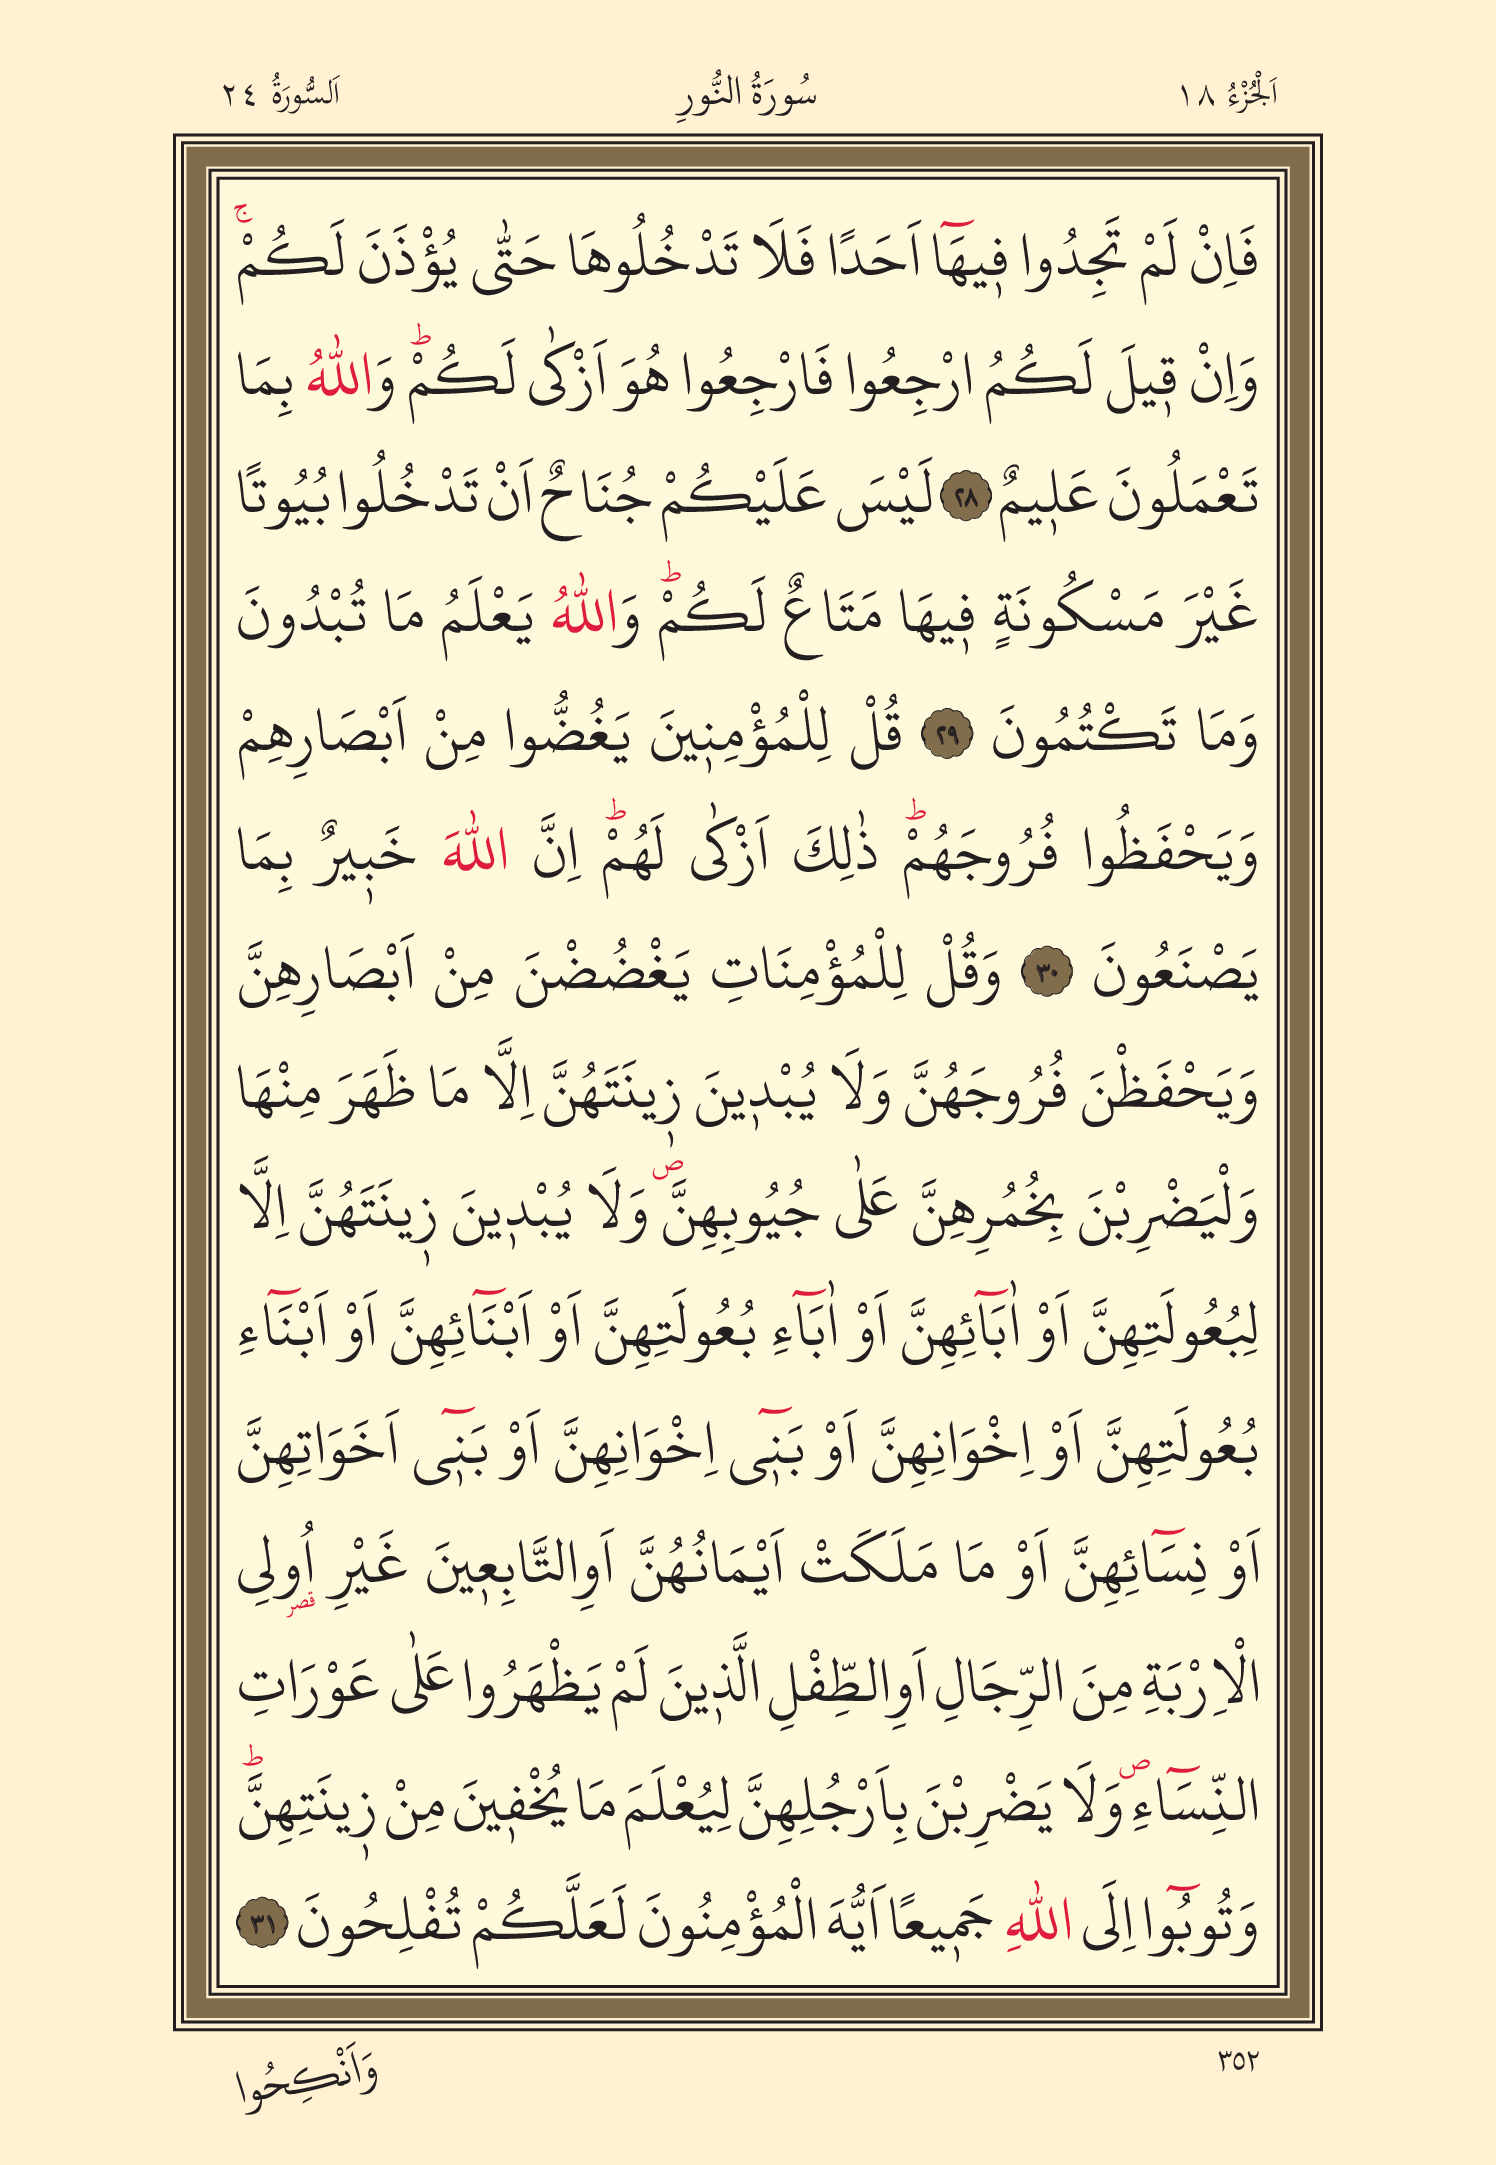 اَلْجُزْءُ ١٨ سُورَةُ النُّورِ اَلسُّورَةُ ٢٤
فَاِنْ لَمْ تَجِدُوا ف۪يهَٓا اَحَدًا فَلَا تَدْخُلُوهَا حَتّٰى يُؤْذَنَ لَكُمْۚ
وَاِنْ ق۪يلَ لَكُمُ ارْجِعُوا فَارْجِعُوا هُوَ اَزْكٰى لَكُمْۜ وَاللّٰهُ بِمَا
تَعْمَلُونَ عَل۪يمٌ ﴿٢٨﴾ لَيْسَ عَلَيْكُمْ جُنَاحٌ اَنْ تَدْخُلُوا بُيُوتًا
غَيْرَ مَسْكُونَةٍ ف۪يهَا مَتَاعٌ لَكُمْۜ وَاللّٰهُ يَعْلَمُ مَا تُبْدُونَ
وَمَا تَكْتُمُونَ ﴿٢٩﴾ قُلْ لِلْمُؤْمِن۪ينَ يَغُضُّوا مِنْ اَبْصَارِهِمْ
وَيَحْفَظُوا فُرُوجَهُمْۜ ذٰلِكَ اَزْكٰى لَهُمْۜ اِنَّ اللّٰهَ خَب۪يرٌ بِمَا
يَصْنَعُونَ ﴿٣٠﴾ وَقُلْ لِلْمُؤْمِنَاتِ يَغْضُضْنَ مِنْ اَبْصَارِهِنَّ
وَيَحْفَظْنَ فُرُوجَهُنَّ وَلَا يُبْد۪ينَ ز۪ينَتَهُنَّ اِلَّا مَا ظَهَرَ مِنْهَا
وَلْيَضْرِبْنَ بِخُمُرِهِنَّ عَلٰى جُيُوبِهِنَّۖ وَلَا يُبْد۪ينَ ز۪ينَتَهُنَّ اِلَّا
لِبُعُولَتِهِنَّ اَوْ اٰبَٓائِهِنَّ اَوْ اٰبَٓاءِ بُعُولَتِهِنَّ اَوْ اَبْنَٓائِهِنَّ اَوْ اَبْنَٓاءِ
بُعُولَتِهِنَّ اَوْ اِخْوَانِهِنَّ اَوْ بَن۪ٓي اِخْوَانِهِنَّ اَوْ بَن۪ٓي اَخَوَاتِهِنَّ
اَوْ نِسَٓائِهِنَّ اَوْ مَا مَلَكَتْ اَيْمَانُهُنَّ اَوِ التَّابِع۪ينَ غَيْرِ اُو۬لِي
قصر
الْاِرْبَةِ مِنَ الرِّجَالِ اَوِ الطِّفْلِ الَّذ۪ينَ لَمْ يَظْهَرُوا عَلٰى عَوْرَاتِ
النِّسَٓاءِۖ وَلَا يَضْرِبْنَ بِاَرْجُلِهِنَّ لِيُعْلَمَ مَا يُخْف۪ينَ مِنْ ز۪ينَتِهِنَّۜ
وَتُوبُٓوا اِلَى اللّٰهِ جَم۪يعًا اَيُّهَ الْمُؤْمِنُونَ لَعَلَّكُمْ تُفْلِحُونَ ﴿٣١﴾
٣٥٢ وَاَنْكِحُوا